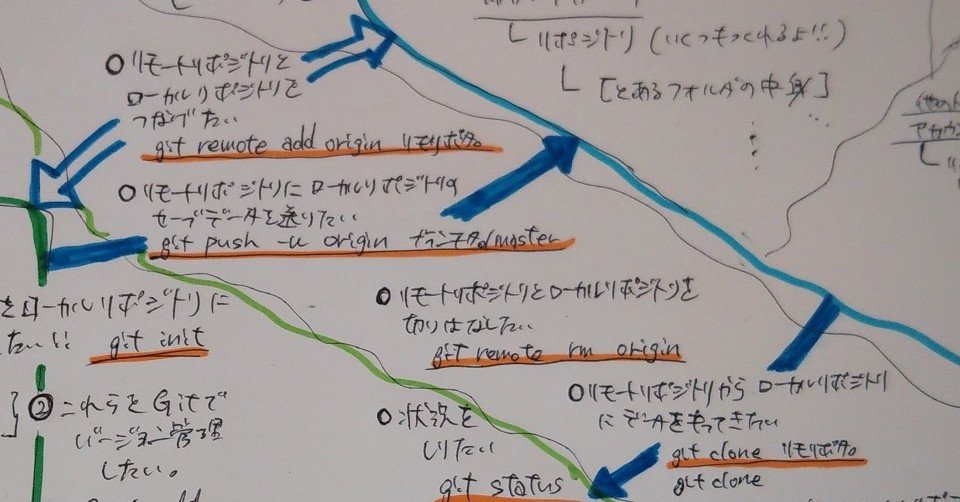 └ リポジトリ (いくつもつくれるよ!!)
└ [とあるフォルダの中身]
○リモートリポジトリと
ローカルリポジトリを
つなげたい
git remote add origin リモリポタ名
○リモートリポジトリにローカルリポジトリの
セーブデータを送りたい
git push -u origin master
○リモートリポジトリとローカルリポジトリを
切りはなしたい
git remote rm origin
をローカルリポジトリに
たい!!
git init
○リモートリポジトリからローカルリポジトリ
にデータをもってきたい
git clone
git clone
②これらをGitで
バージョン管理
したい。
○状況を
しりたい
git status